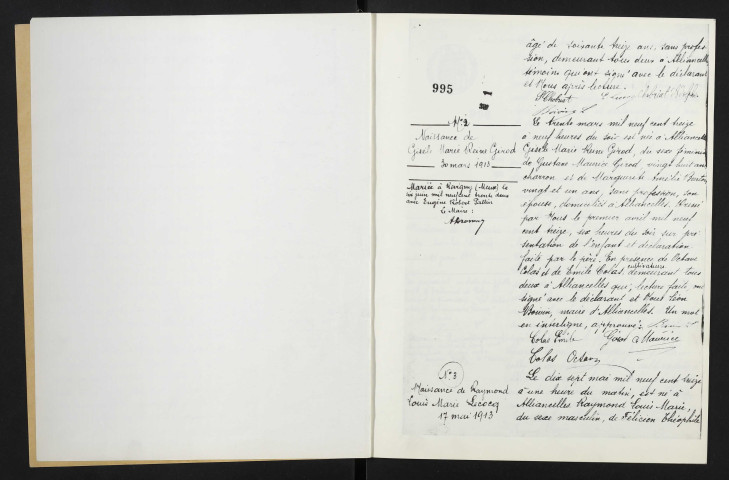 995
âgé de soixante treize ans, sans profes-
sion, demeurant tous deux à Alliancelles
témoins qui ont signé avec le déclarant
et Nous après lecture.
N° 2
Naissance de
Gisèle Marie Reine Girod
30 mars 1913
Mariée à Vargny (Meuse) le
six juin mil neuf cent trente deux
avec Eugène Robert
Le Maire :
Le trente mars mil neuf cent treize
à neuf heures du soir est née à Alliancelles
Gisèle Marie Reine Girod, du sexe féminin
de Gustave Maurice Girod, vingt huit ans
charron et de Marguerite Amélie
vingt et un ans, sans profession, son
épouse, domiciliés à Alliancelles. Dressé
par Nous le premier avril mil neuf
cent treize, six heures du soir sur pré-
sentation de l'enfant et déclaration
faite par le père. En présence de Octave
Colas et de Emile Colas, cultivateurs demeurant tous
deux à Alliancelles qui, lecture faite, ont
signé avec le déclarant et Nous Léon
maire d'Alliancelles. Un mot
en interligne, approuvé :
Colas Emile Girod Maurice
Colas Octave
N° 3
Naissance de Raymond
Louis Marie Lecocq
17 mai 1913
Le dix sept mai mil neuf cent treize
à une heure du matin, est né à
Alliancelles Raymond Louis Marie
du sexe masculin, de Félicien Théophile